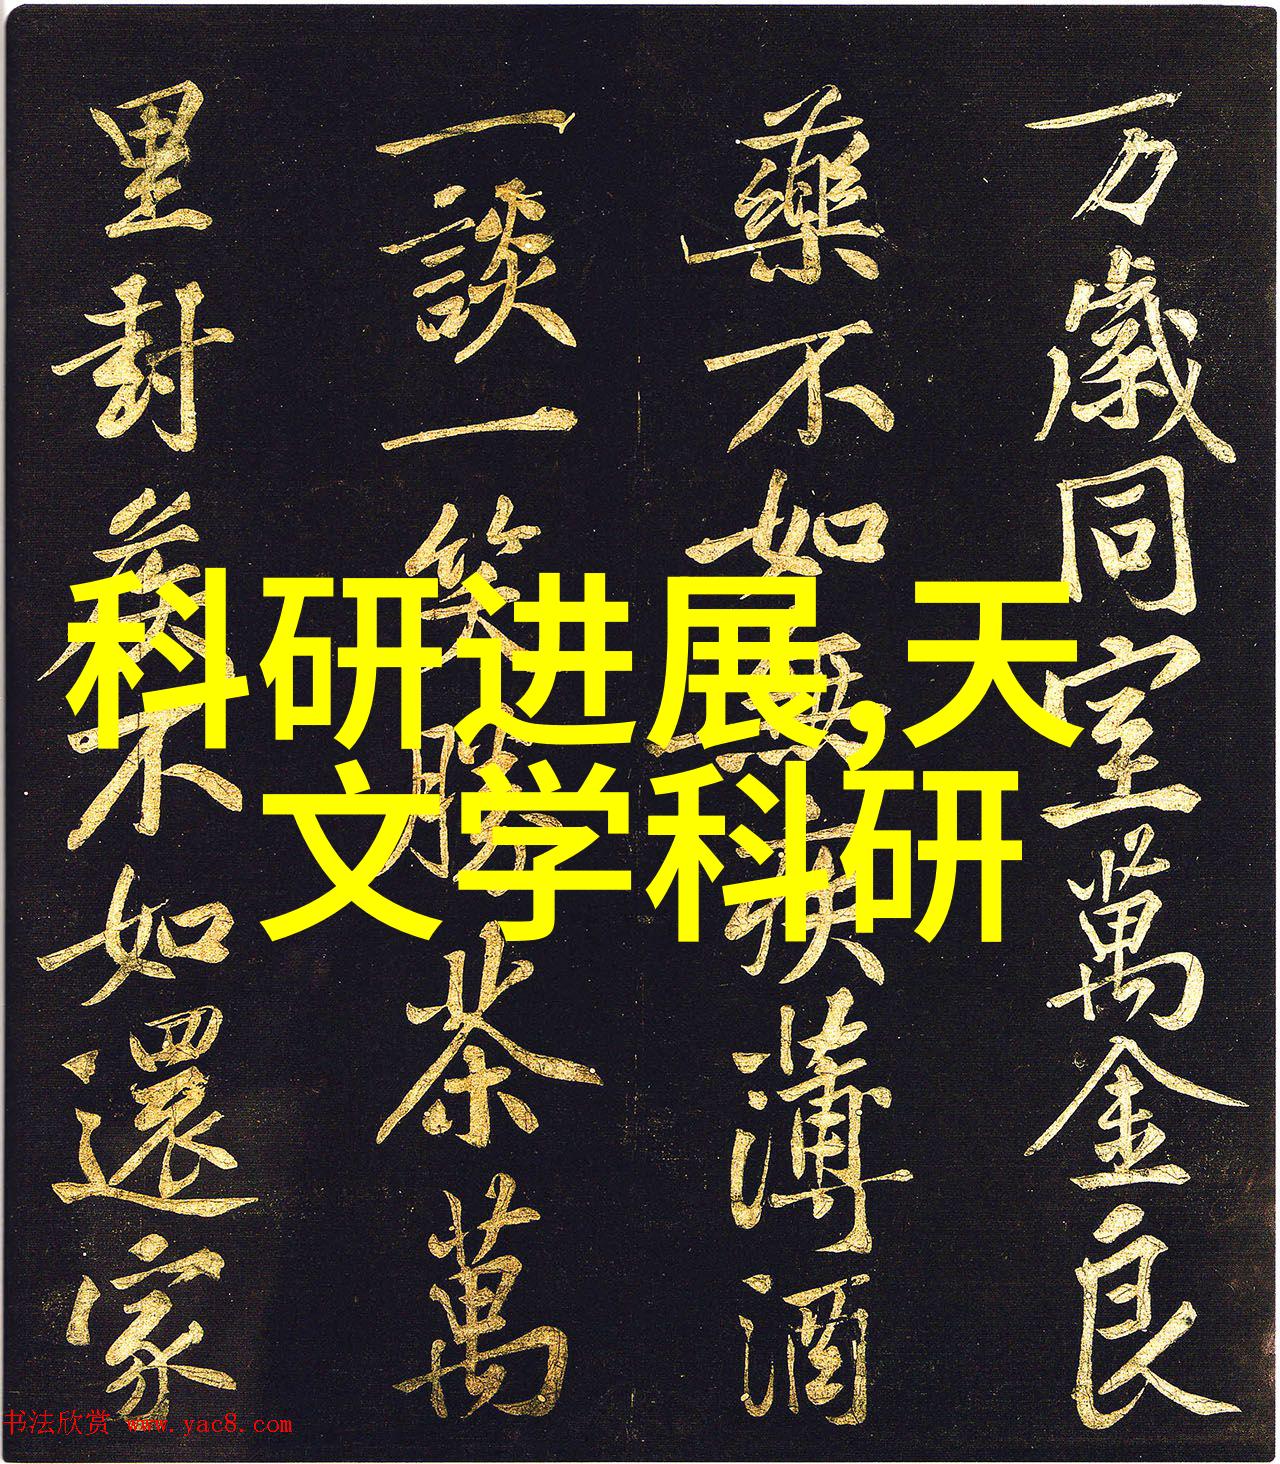 科研进展,天
文学科研
万歲同室萬金良
藥不如無疾薄酒
一談一笑勝茶萬
里封侯不如還家
书法欣赏 www.yac8.com